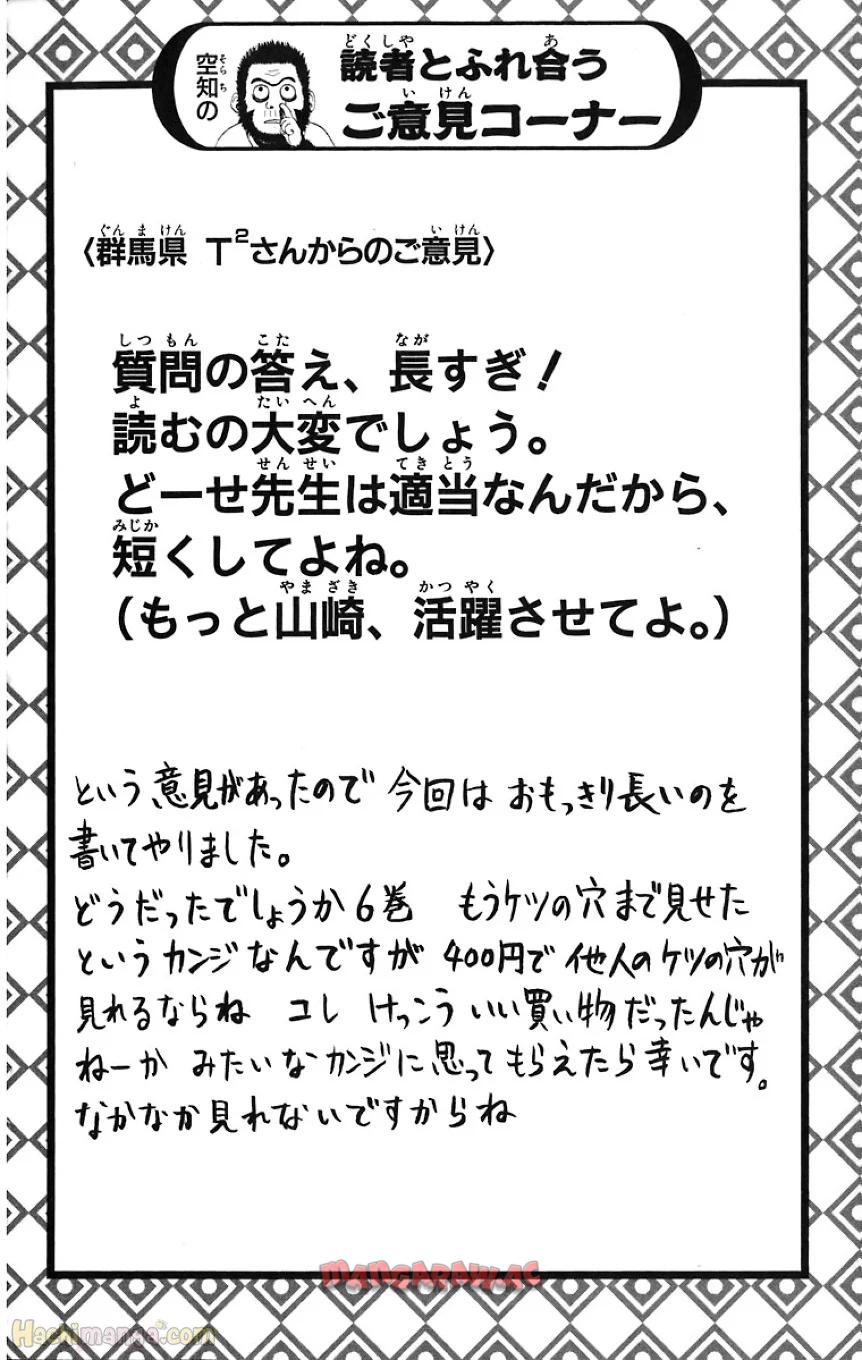 空知の
読者とふれ合う
ご意見コーナー
〈群馬県 T²さんからのご意見〉
質問の答え、長すぎ!
読むの大変でしょう。
どーせ先生は適当なんだから、
短くしてよね。
(もっと山崎、活躍させてよ。)
という意見があったので 今回は おもっきり長いのを
書いてやりました。
どうだったでしょうか6巻 もうケツの穴まで見せた
というカンジなんですが 400円で他人のケツの穴が
見れるならね コレ けっこういい買い物だったんじゃ
ねーか みたいなカンジに思ってもらえたら幸いです。
なかなか見れないですからね
MANGARAW.AC
Hachimanga.com